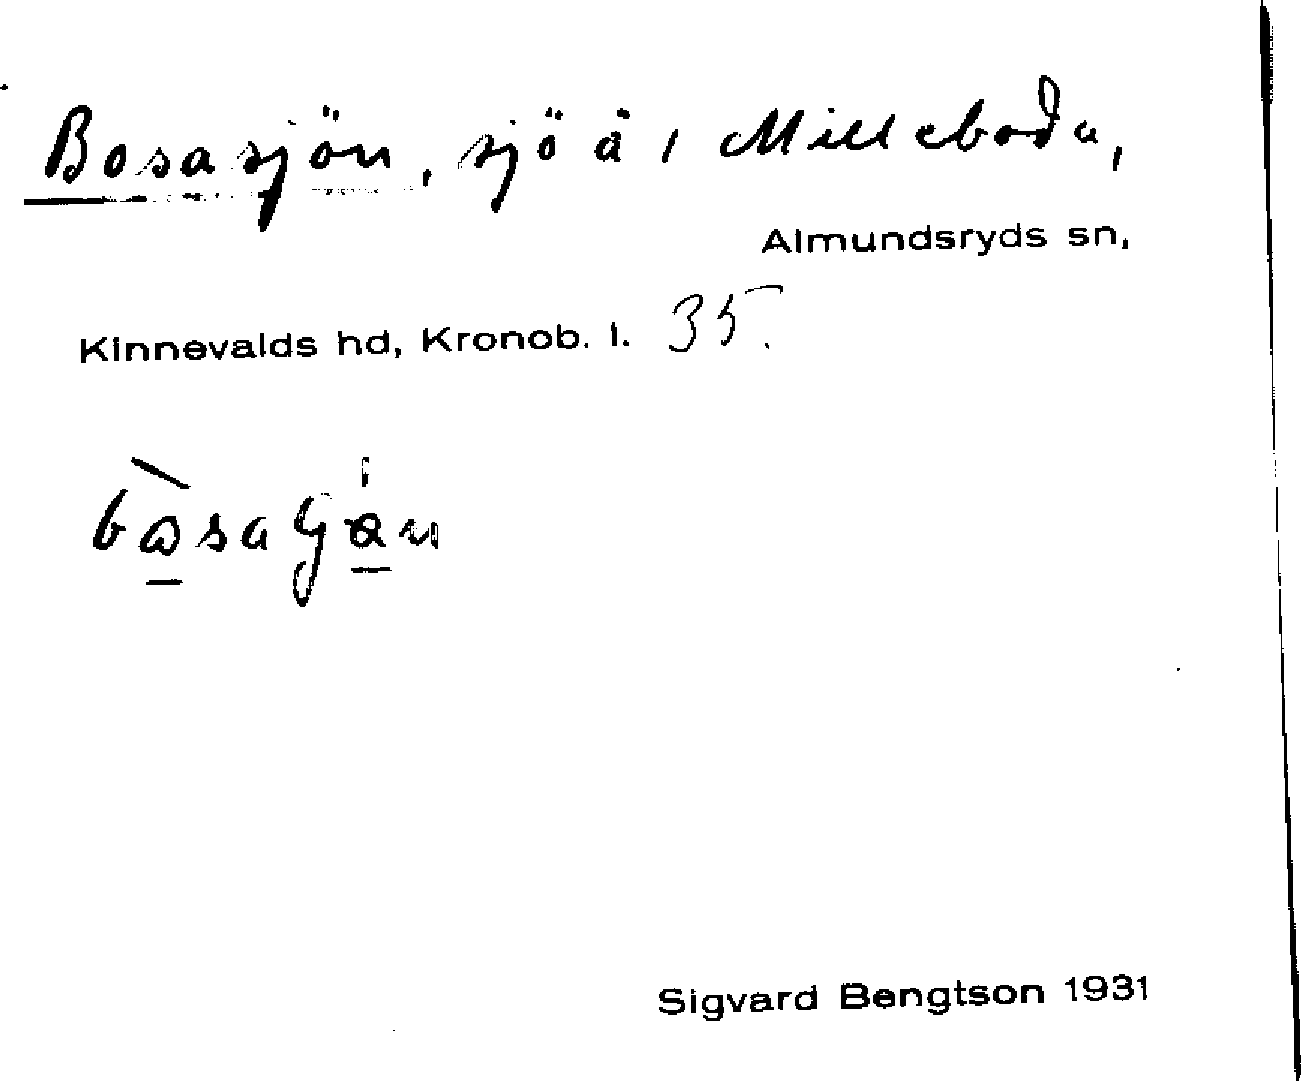 Bosasjön, sjö å i Milleboda,
Almundsryds sn,
Kinnevalds hd, Kronob. l. 35.
Sigvard Bengtson 1931